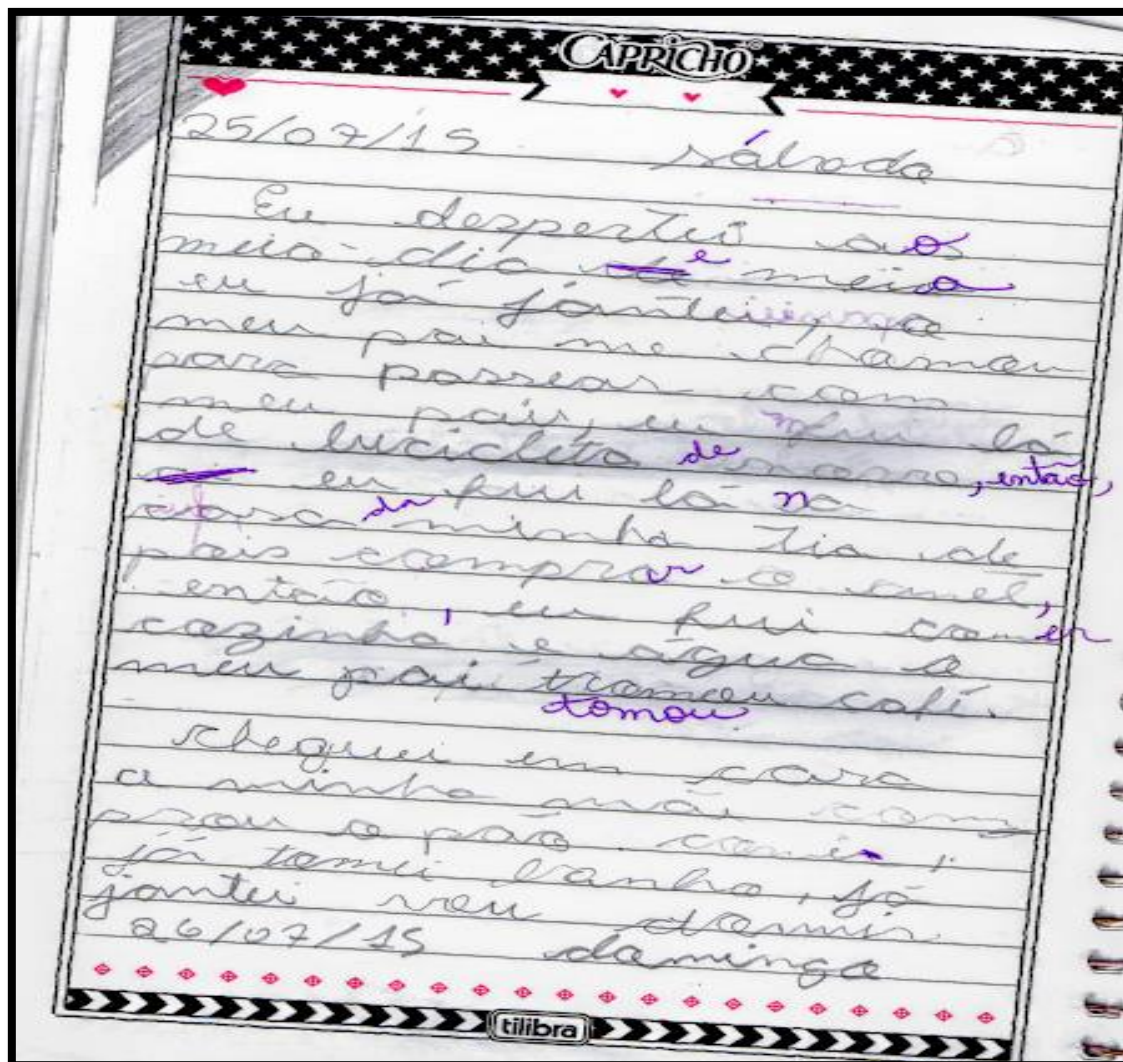 CAPRICHO
25/07/15 sábado
Eu despertei aos
meio-dia e meia
eu já jantei, o
meu pai me chamou
para passear com
meu pai, eu fui lá
de bucicleta de morro, então,
eu fui lá na
casa da minha tia de
pois comprar o anel,
então, eu fui comer
cozinha e água o
meu pai tramou café.
tomou
cheguei em casa
a minha mãe com
prou o pão comi,
já tomei banho, já
jantei vou dormir.
26/07/15 domingo
tilibra